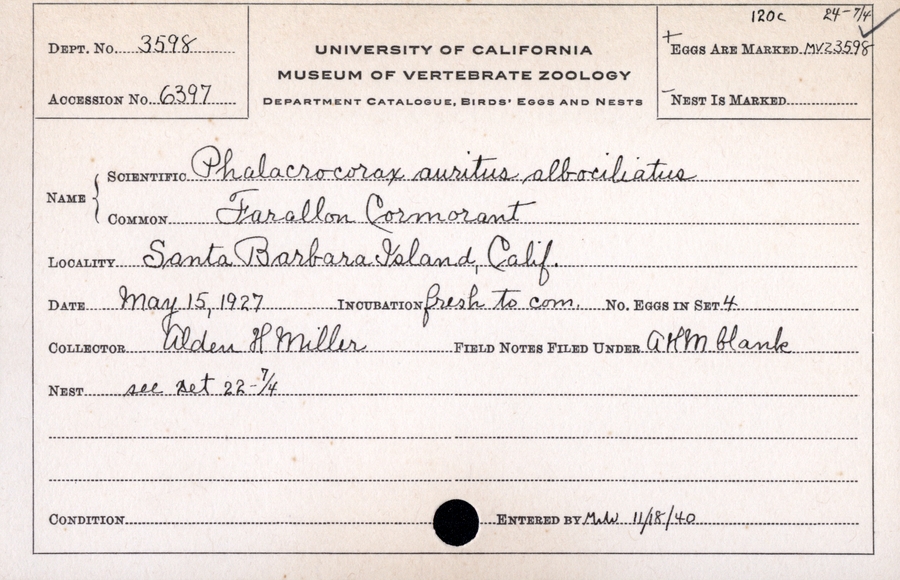 120c 24-7/4
Dept. No. 3598
UNIVERSITY OF CALIFORNIA
+ Eggs Are Marked MVZ3598
MUSEUM OF VERTEBRATE ZOOLOGY
Accession No. 6397
Department Catalogue, Birds' Eggs and Nests
- Nest Is Marked
Name
Scientific Phalacrocorax auritus albociliatus
Common Farallon Cormorant
Locality Santa Barbara Island, Calif.
Date May 15, 1927 Incubation fresh to com. No. Eggs in Set 4
Collector Alden H Miller Field Notes Filed Under AHM blank
Nest see set 22-7/4
Condition Entered by 11/18/40